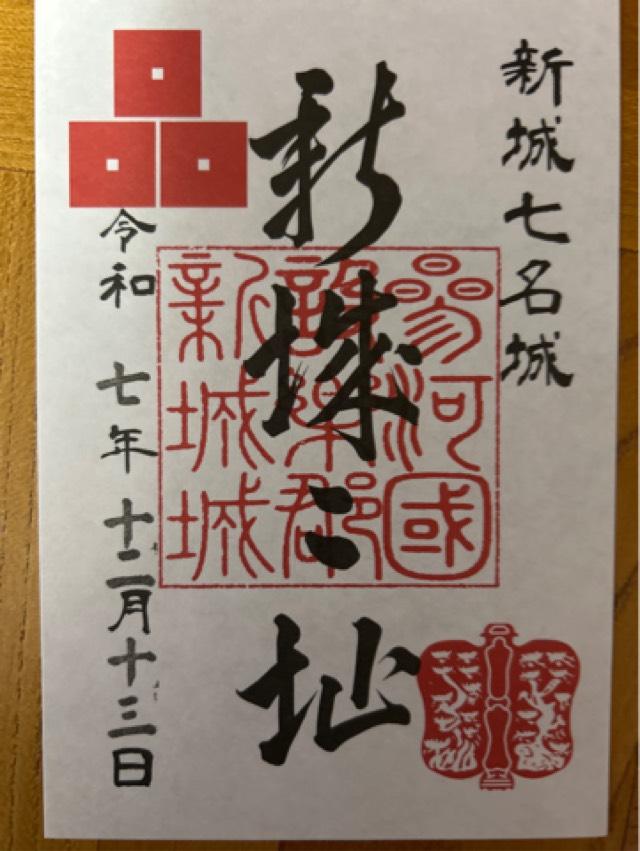 新城七名城
新城々址
参河國
設樂郡
新城城
令和 七年 十二月 十三日